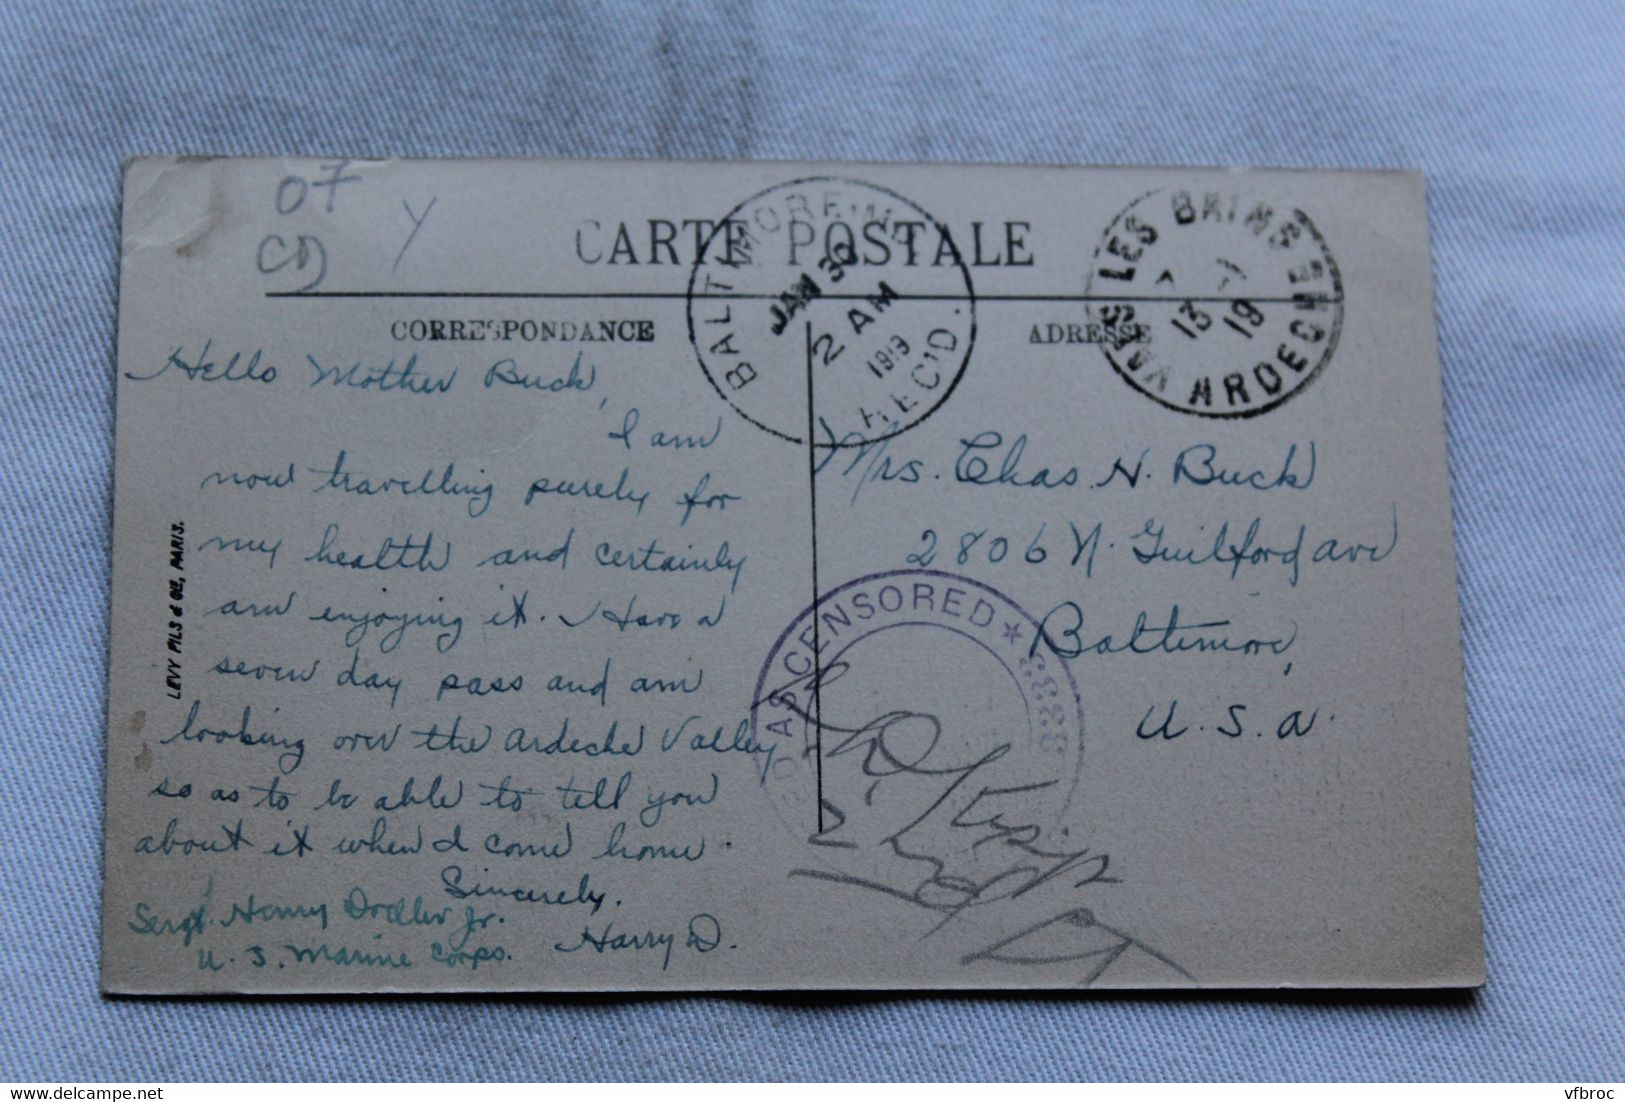 07
CD
Y
CARTE POSTALE
CORRESPONDANCE
ADRESSE
BALTIMORE, MD.
JAN 30
2 AM
1919
REC'D.
VALS LES BAINS
13 - 1
19
ARDECHE
Hello Mother Buck,
I am
now travelling purely for
my health and certainly
am enjoying it. I have a
seven day pass and am
looking over the Ardeche Valley
so as to be able to tell you
about it when I come home.
Sincerely,
Harry D.
Sergt. Henry Doeller Jr.
U. S. Marine Corps.
LEVY FILS & CIE, PARIS.
Mrs. Chas. H. Buck
2806 N. Guilford Ave
Baltimore,
U. S. A.
CENSORED
vfbroc